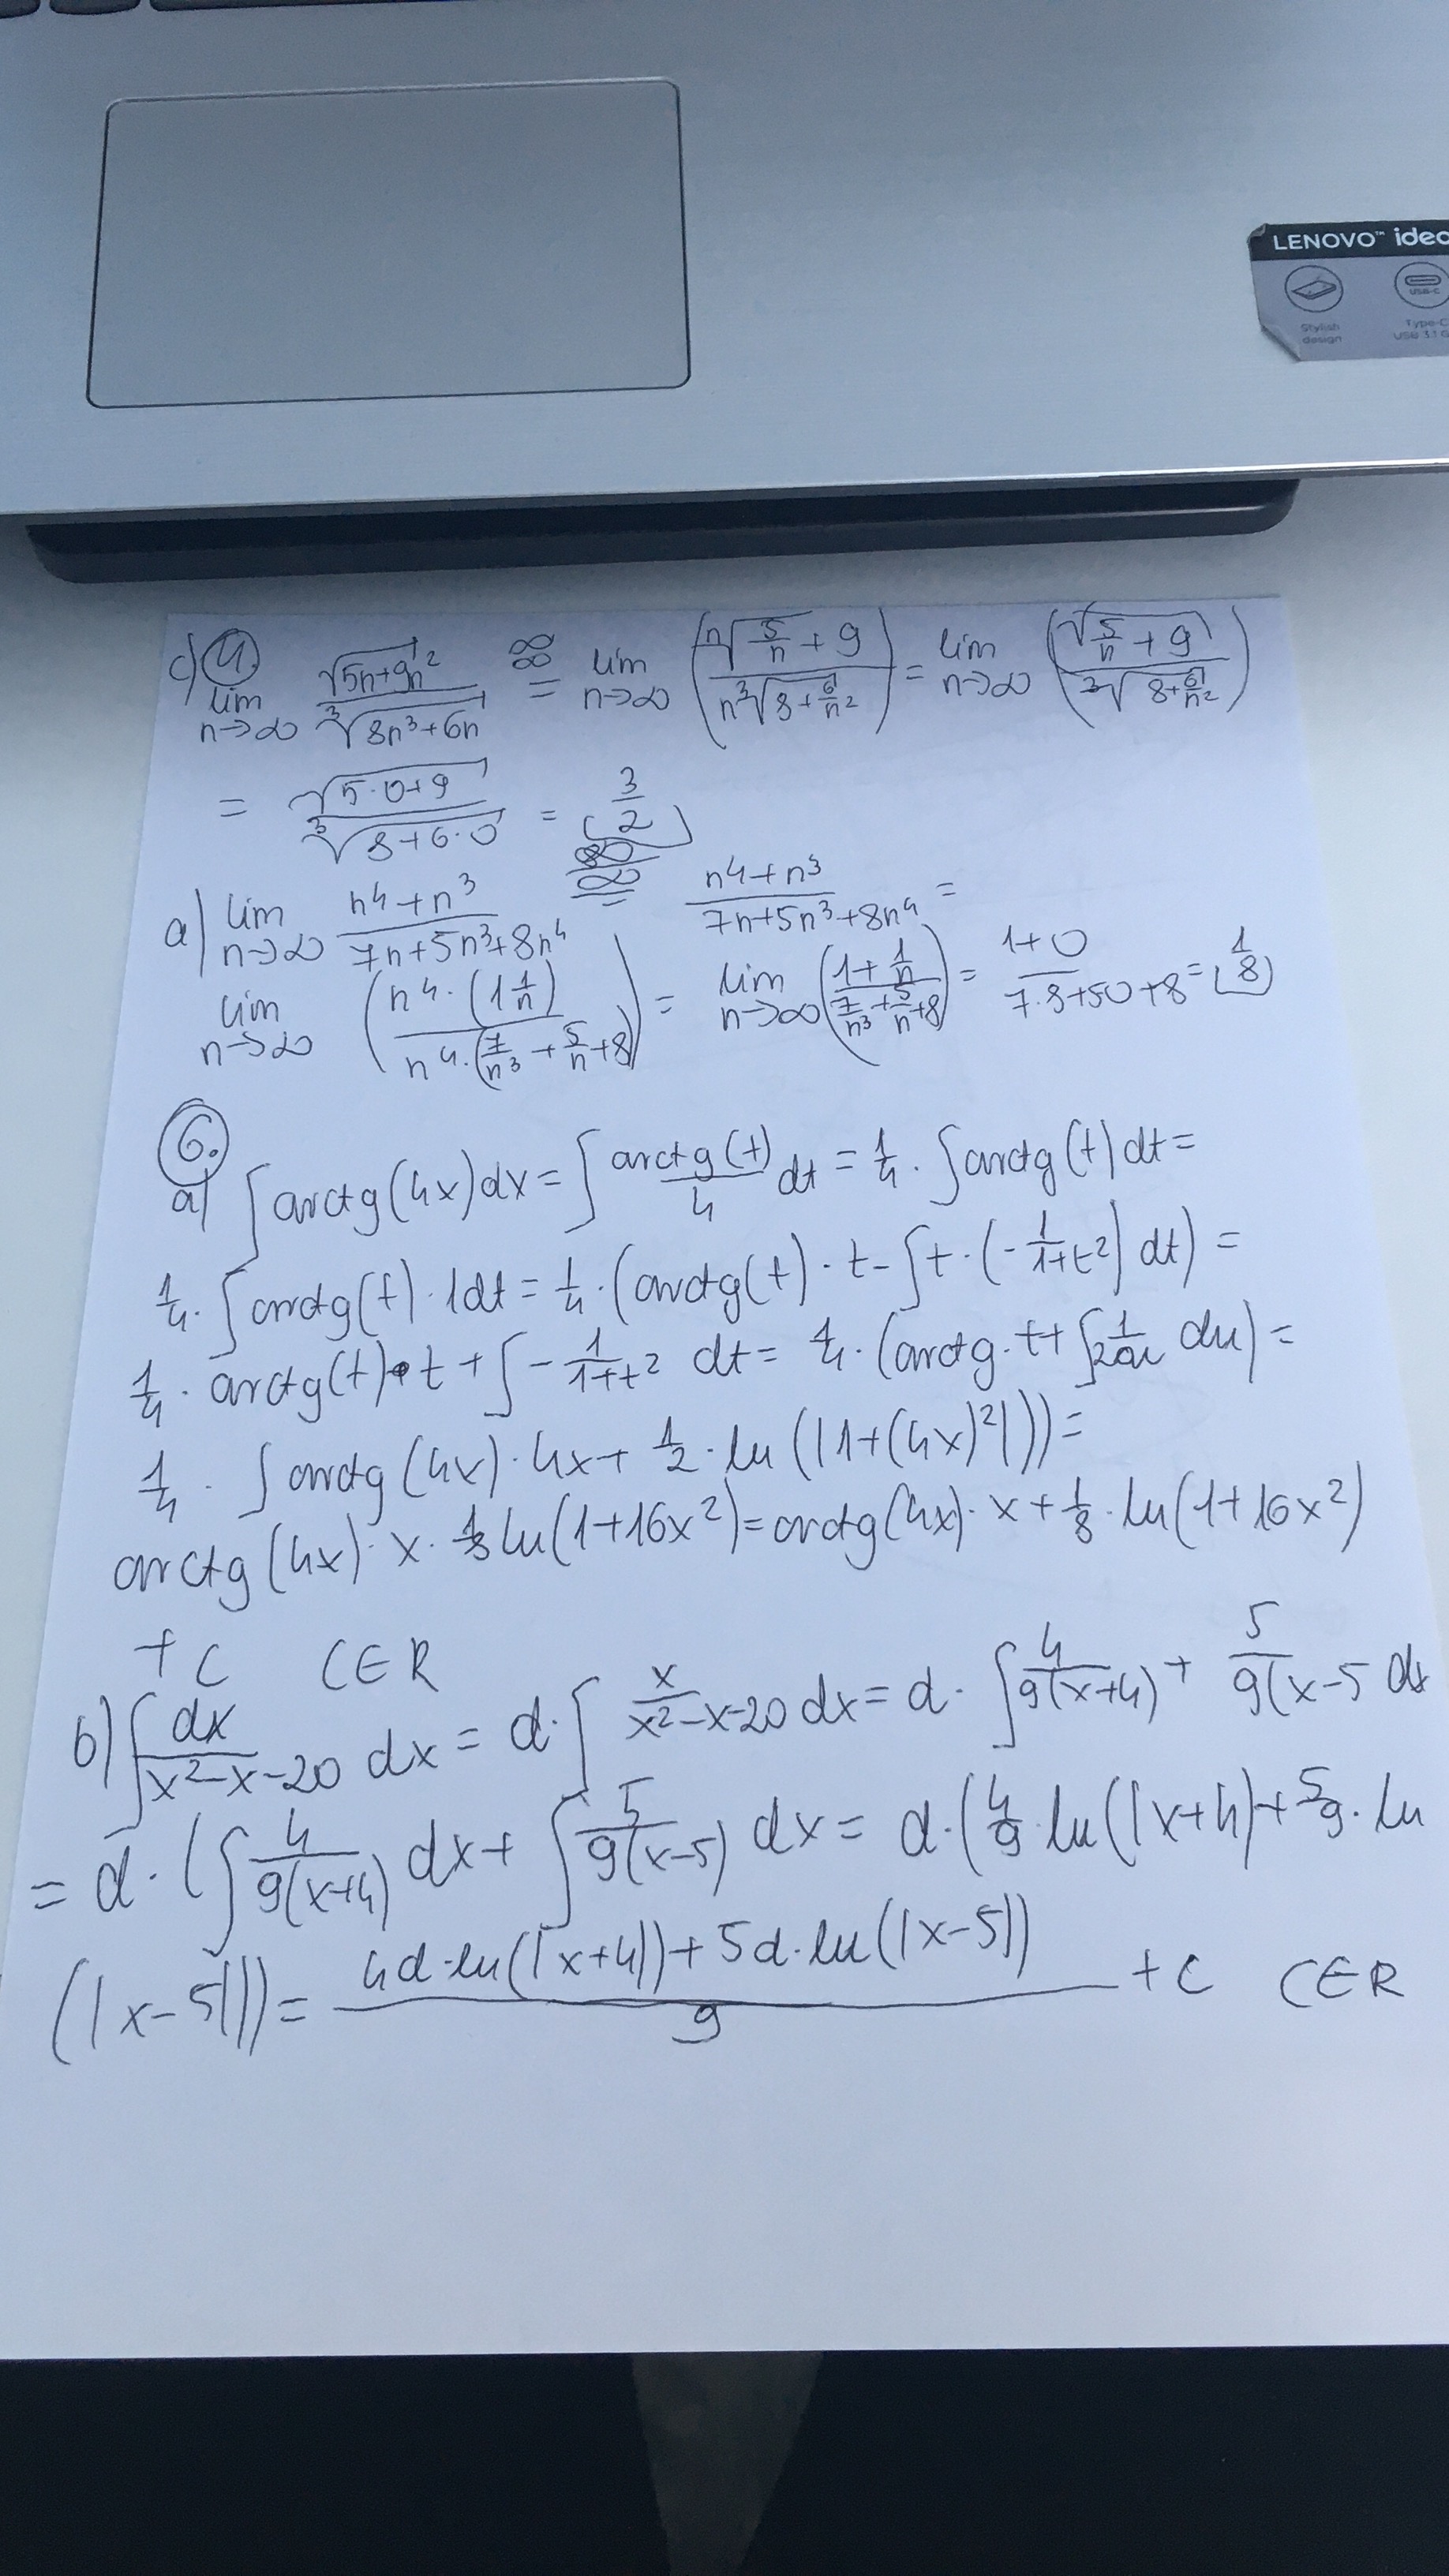 LENOVO™ idea
Stylish design
USB-C
Type-C
USB 3.1 G
c) 4.
lim n→∞ √(5n+9n²) / ∛(8n³+6n) =^(∞/∞) lim n→∞ (n√(5/n + 9) / n∛(8 + 6/n²)) = lim n→∞ (√(5/n + 9) / ∛(8 + 6/n²))
= √(5·0+9) / ∛(8+6·0) = 3/2
a) lim n→∞ (n⁴+n³) / (7n+5n³+8n⁴) =^(∞/∞) (n⁴+n³) / (7n+5n³+8n⁴) =
lim n→∞ (n⁴·(1 1/n) / n⁴·(7/n³ + 5/n + 8)) = lim n→∞ ((1 + 1/n) / (7/n³ + 5/n + 8)) = (1+0) / (7·8+50+8) = 1/8
6.
a) ∫ arctg(4x)dx = ∫ arctg(t)/4 dt = 1/4 · ∫ arctg(t)dt =
1/4 · ∫ arctg(t)·1dt = 1/4 · (arctg(t)·t - ∫ t·(- 1/(1+t²)) dt) =
1/4 · arctg(t)·t + ∫ - 1/(1+t²) dt = 1/4 · (arctg·t + ∫ 1/2u du) =
1/4 · ∫ arctg(4x)·4x + 1/2 · ln(|1+(4x)²|)) =
arctg(4x)·x · 1/8 ln(1+16x²) = arctg(4x)·x + 1/8 · ln(1+16x²)
+ C C∈R
b) ∫ dx/(x²-x-20) dx = d·∫ x/(x²-x-20) dx = d· ∫ 4/(9(x+4)) + 5/(9(x-5 dx
= d·(∫ 4/(9(x+4)) dx + ∫ 5/(9(x-5)) dx = d·(4/9·ln(|x+4|)+ 5/9·ln
(|x-5|)) = (4d·ln(|x+4|)+5d·ln(|x-5|)) / 9 + C C∈R